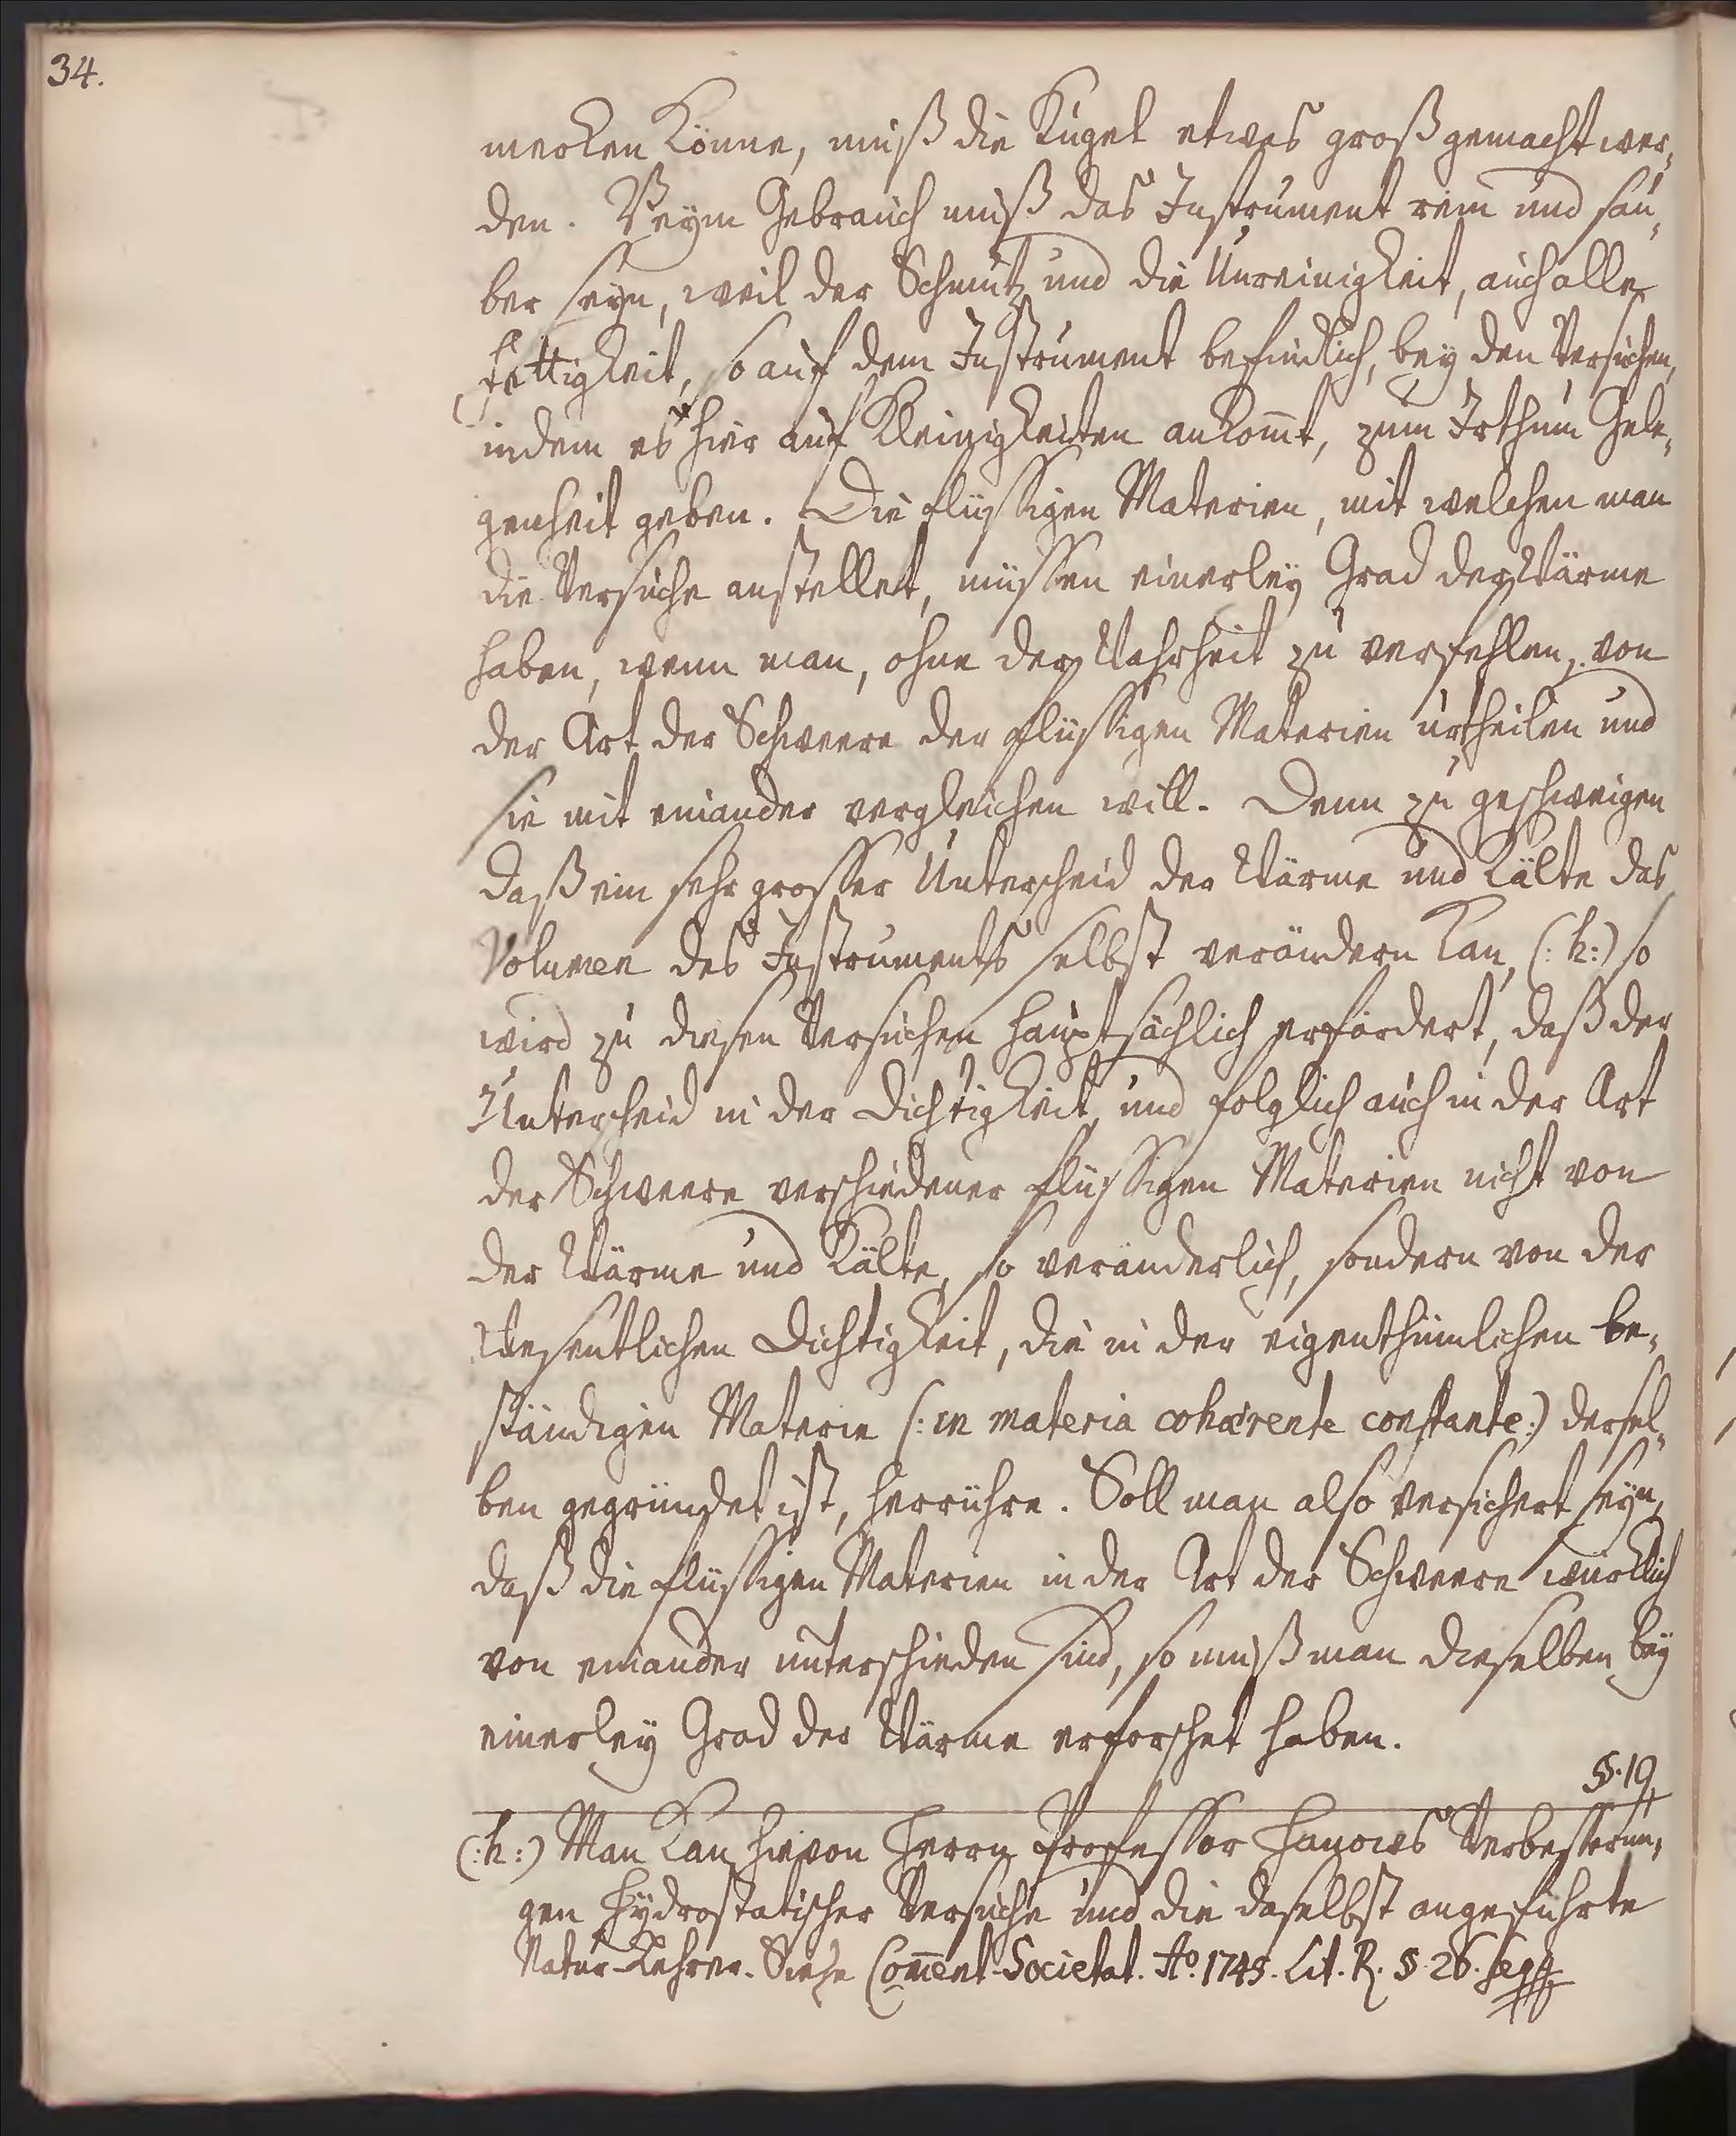 34.
merken könne, muß die Kugel etwas groß gemacht wer,
den. Beym Gebrauch muß das Instrument rein und sau,
ber seyn, weil der Schmutz und die Unreinigkeit, auch alle
Fettigkeit, so auf dem Instrument befindlich, bey den Versuchen,
indem es hier auf Kleinigkeiten ankomt, zum Irthum Gele,
genheit geben. Die flüssigen Materien, mit welchen man
die Versuche anstellet, müssen einerley Grad der Wärme
haben, wenn man, ohne der Wahrheit zu verfehlen, von
der Art der Schweere der flüssigen Materien urtheilen und
sie mit einander vergleichen will. Denn zu geschweigen
daß ein sehr grosser Unterscheid der Wärme und Kälte das
Volumen des Instruments selbst verändern kan, (:h:) so
wird zu diesen Versuchen hauptsächlich erfordert, daß der
Unterscheid in der Dichtigkeit, und folglich auch in der Art
der Schweere verschiedener flüssigen Materien nicht von
der Wärme und Kälte, so veränderlich, sondern von der
Wesentlichen Dichtigkeit, die in der eigenthümlichen be,
ständigen Materie (:in materia cohærente constante:) dersel,
ben gegründet ist, herrühre. Soll man also versichert seyn,
daß die flüssigen Materien in der Art der Schweere würcklich
von einander unterschieden sind, so muß man dieselben bey
einerley Grad der Wärme erforschet haben.
§. 19.
(:h:) Man kan hievon Herrn Professor Hanows Verbesserun,
gen Hydrostatischer Versuche und die daselbst angeführte
Natur-Lehrer. Siehe Coment. Societat. Ao. 1745. Lit. R. §. 26. seqq.